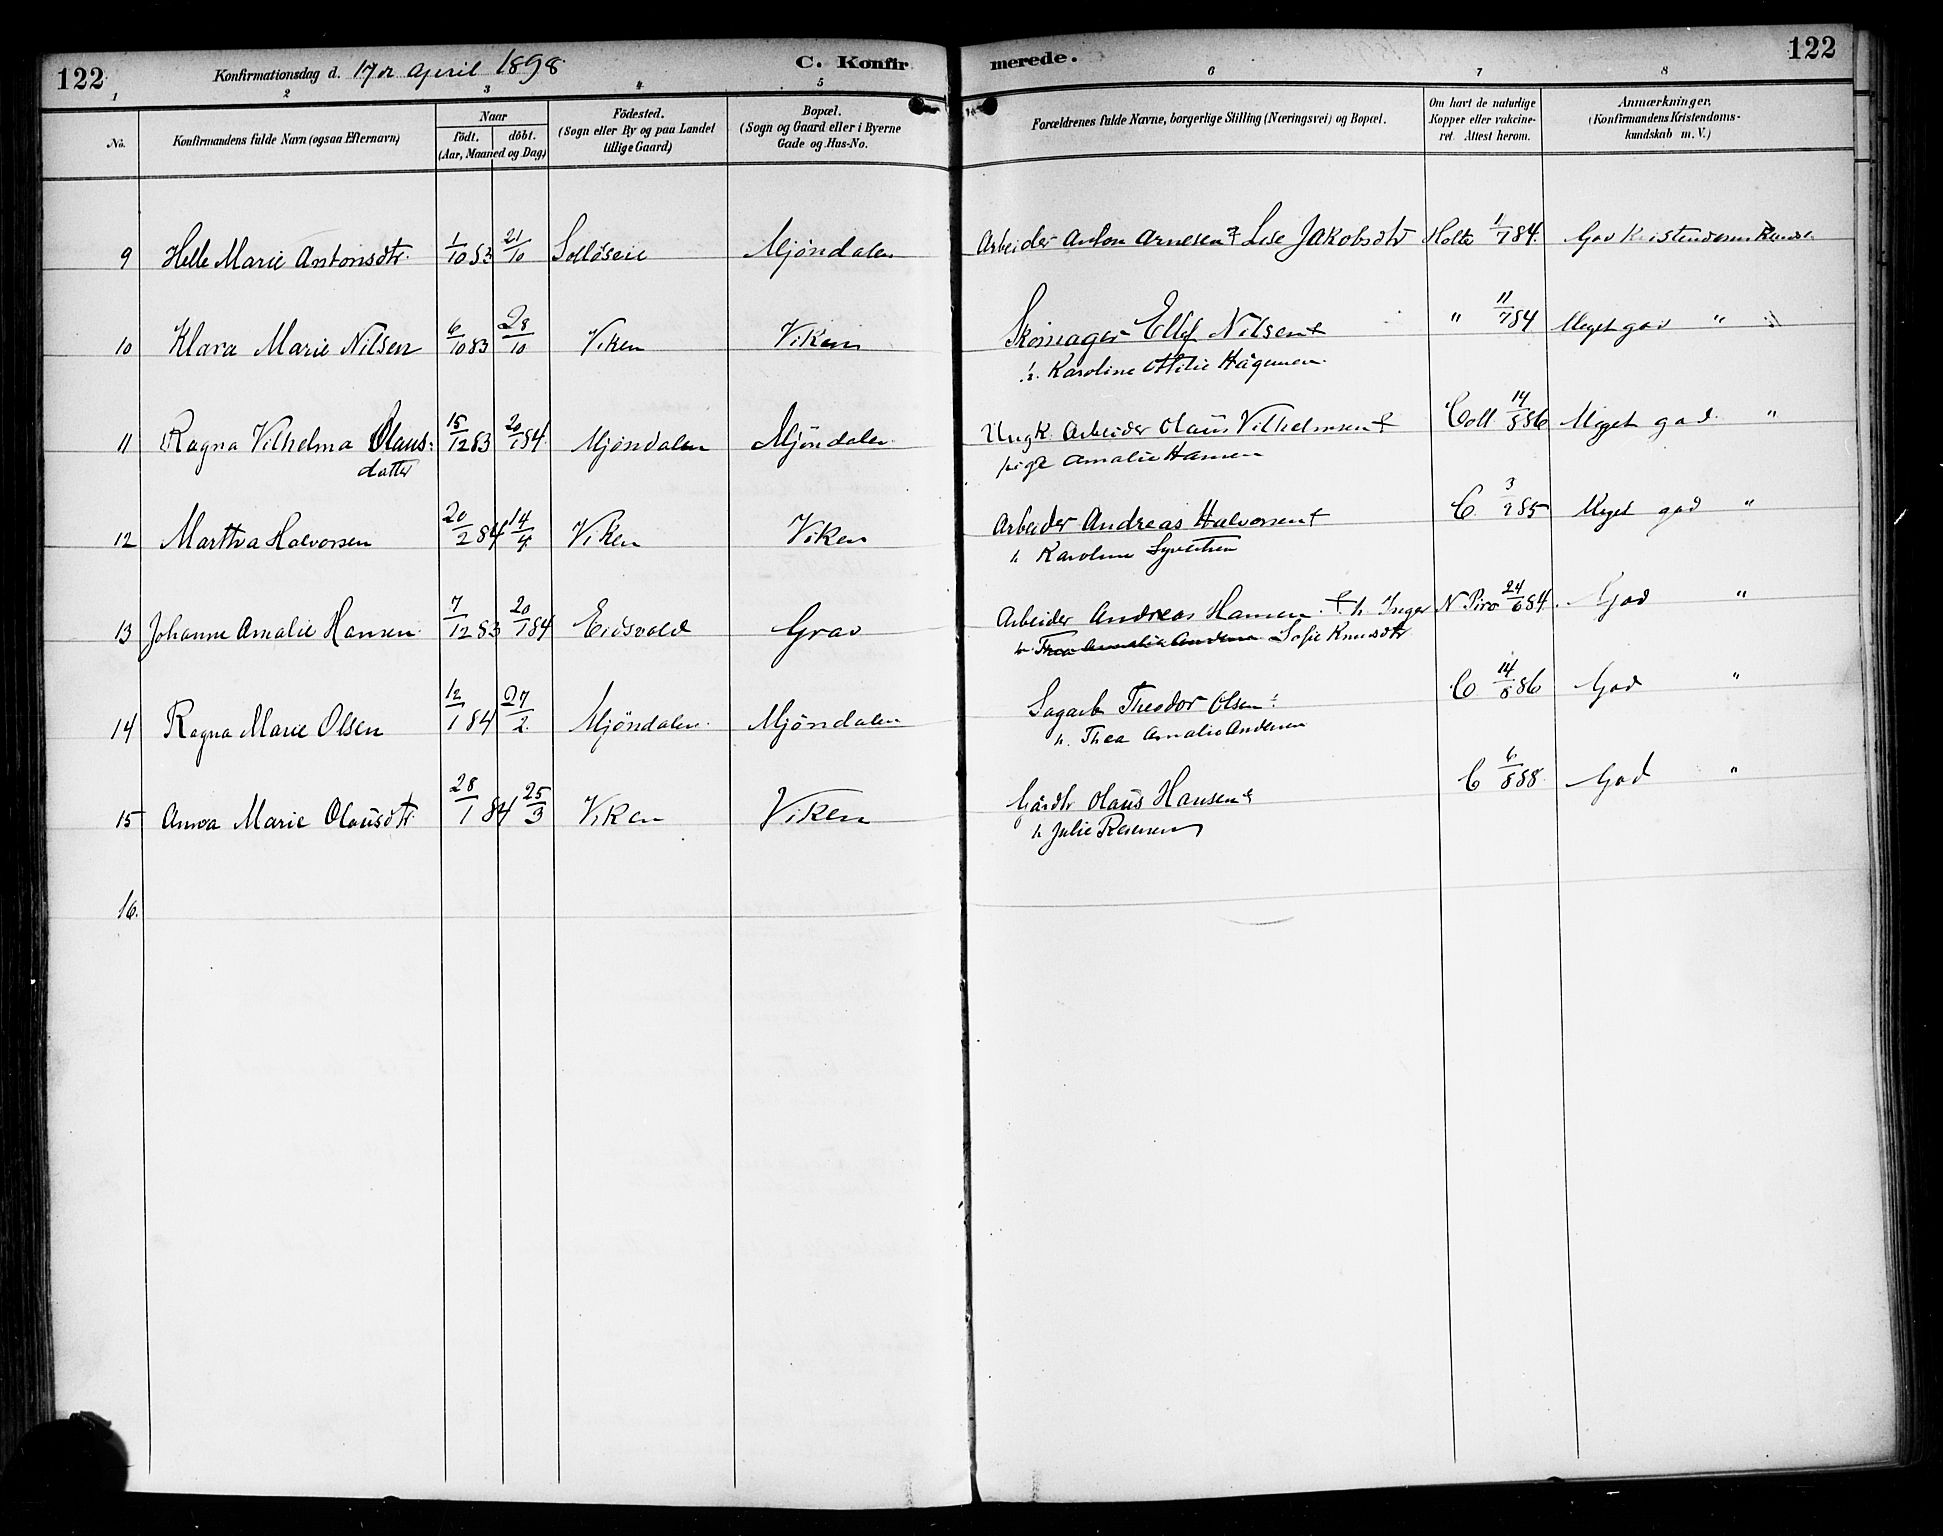 122
Konfirmationsdag d. 17de April 1898
C. Konfirmerede.
122
1 2 3 4 5 6 7 8
No.
Konfirmandens fulde Navn (ogsaa Efternavn)
Naar
födt. döbt.
(Aar, Maaned og Dag)
Födested.
(Sogn eller By og paa Landet
tillige Gaard)
Bopæl.
(Sogn og Gaard eller i Byerne
Gade og Hus-No.
Forældrenes fulde Navne, borgerlige Stilling (Næringsvei) og Bopæl.
Om havt de naturlige
Kopper eller vakcine-
ret. Attest herom.
Anmærkninger.
(Konfirmandens Kristendoms-
kundskab m. V.)
9 Helle Marie Antonsdtr. 1/10 83 21/10 Solløseie Mjöndalen Arbeider Anton Arnesen & Lise Jakobsdtr Holte 1/7 84. God Kristendoms Kundsk.
10 Klara Marie Nilsen 6/10 83 28/10 Viken Viken Skomager Ellef Nilsen & " 11/7 84 Meget god " "
h. Karoline Otilie Hågensen
11 Ragna Vilhelma Olaus= 15/12 83 20/1 84. Mjöndalen Mjöndalen Ungk. Arbeider Olaus Vilhelmsen & Coll 14/8 86 Meget god "
datter pige Amalie Hansen
12 Martha Halvorsen 20/2 84 14/4 Viken Viken Arbeider Andreas Halvorsen & C. 3/9 85 Meget god "
h Karoline Syvertsen
13 Johanne Amalie Hansen 7/12 83 20/1 84 Eidsvold Grav Arbeider Andreas Hansen & h Inger N Piro 24/6 84. God "
h. Thea Amalia Andersen Sofie Knudsdtr
14 Ragna Marie Olsen 12/1 84 27/2. Mjöndalen. Mjöndalen Sagarb Theodor Olsen & C 14/8 86 God "
h. Thea Amalie Andersen
15 Anna Marie Olausdtr. 28/1 84 25/3 Viken Viken Gårdbr Olaus Hansen & C 6/8 88. God "
h Julie
16.